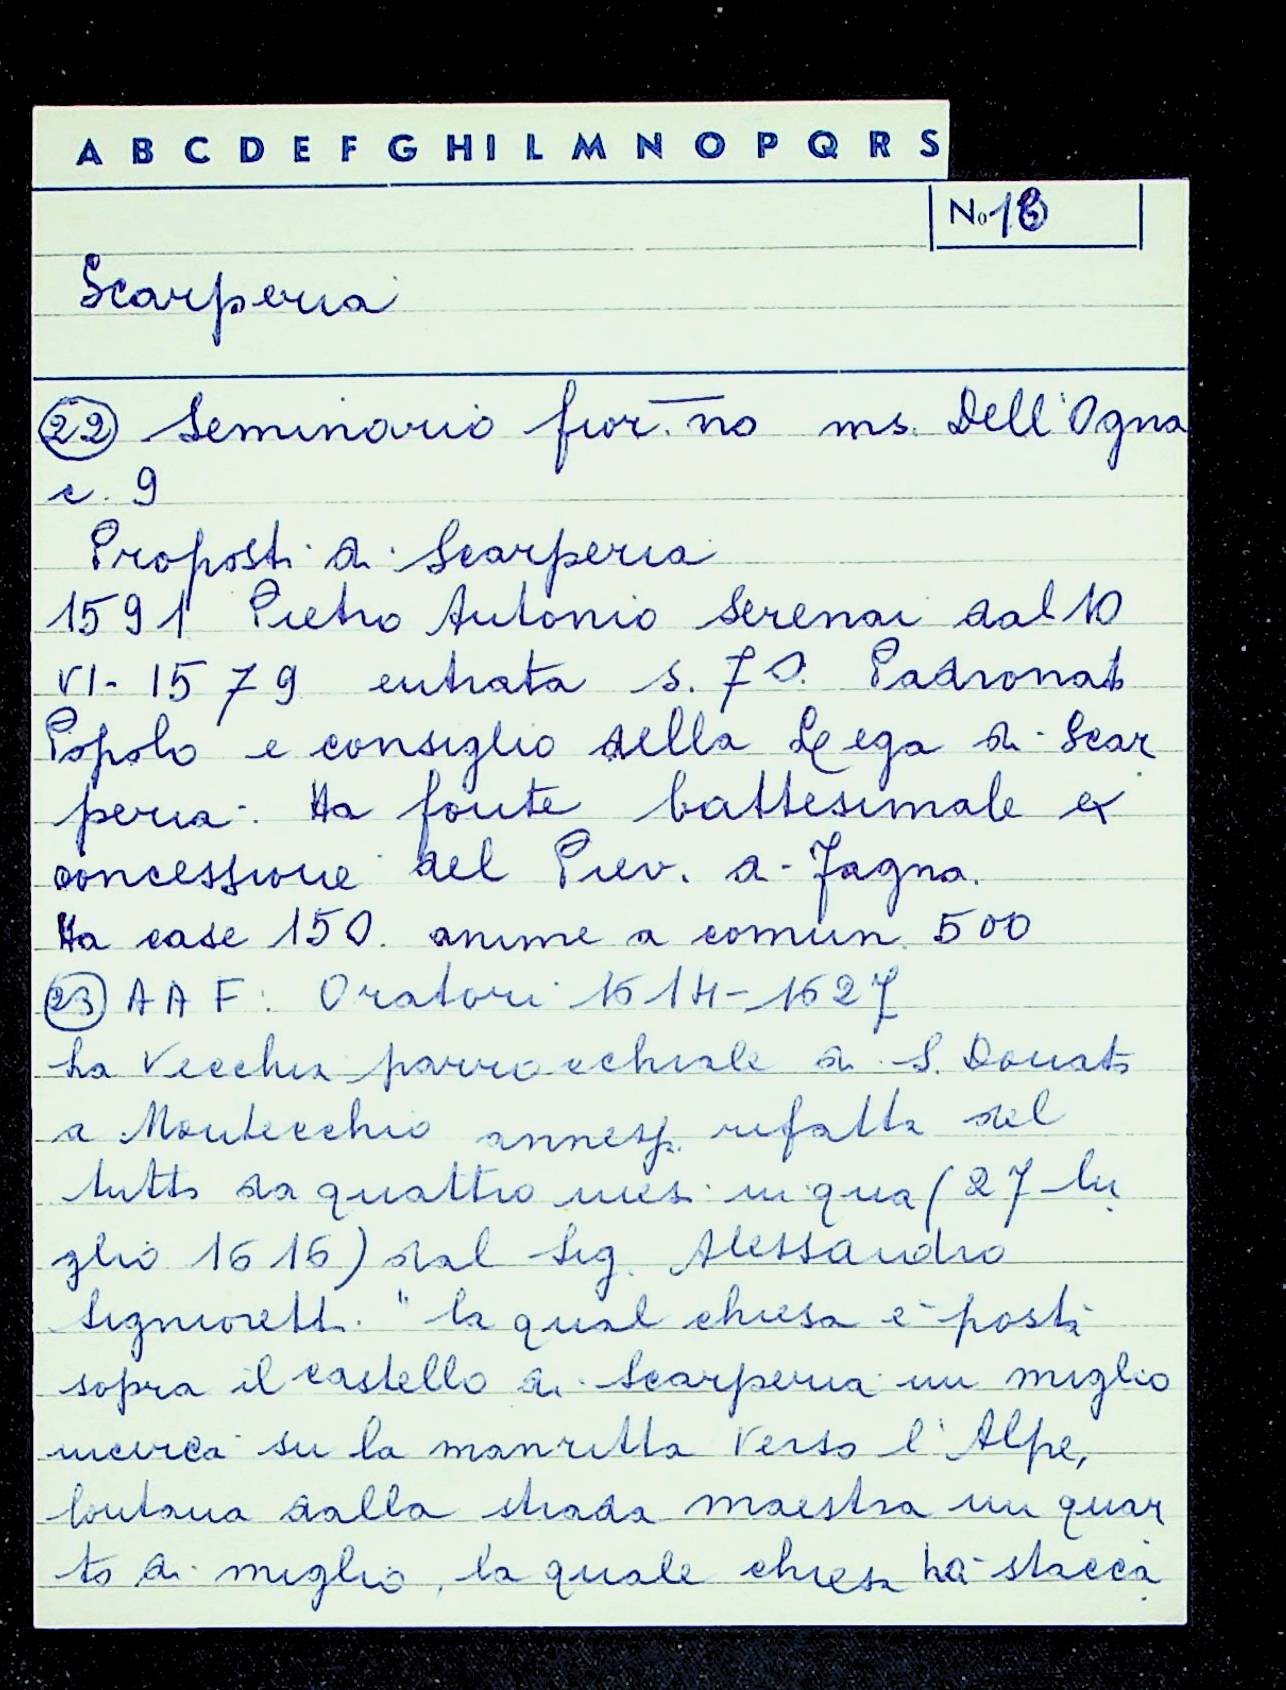 A B C D E F G H I L M N O P Q R S
No 16
Scarperia
22 Seminario fior.no ms. Dell'Ogna
c. 9
Proposti di Scarperia
1591 Pietro Antonio Serenai dal 10
VI-1579 entrata s. 70. Padronato
Popolo e consiglio della Lega di Scar
peria. Ha fonte battesimale ex
concessione del Piev. di Fagna.
Ha case 150. anime a comun. 500
23 AAF: Oratori 1614-1627
La Vecchia parrocchiale di S. Donato
a Montecchio annessa rifatta del
tutto da quattro mesi in qua (27 lu
glio 1616) dal Sig. Alessandro
Signoretti. "la qual chiesa è posta
sopra il castello di Scarperia un miglio
incirca su la manritta verso l'Alpe,
lontana dalla strada maestra un quar
to di miglio, la quale chiesa ha stacca